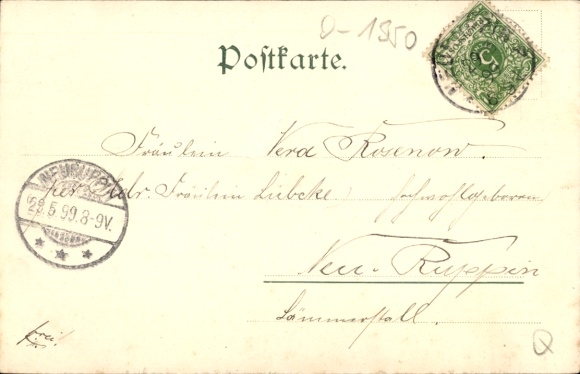 O-1950
Postkarte.
5
Fräulein Verd Rosenow.
NEURUPPIN
28.5.99.8-9V.
per Adr. Fräulein Lübcke hochwohlgeboren
Neu-Ruppin
Lämmerstall.
frei!
Q